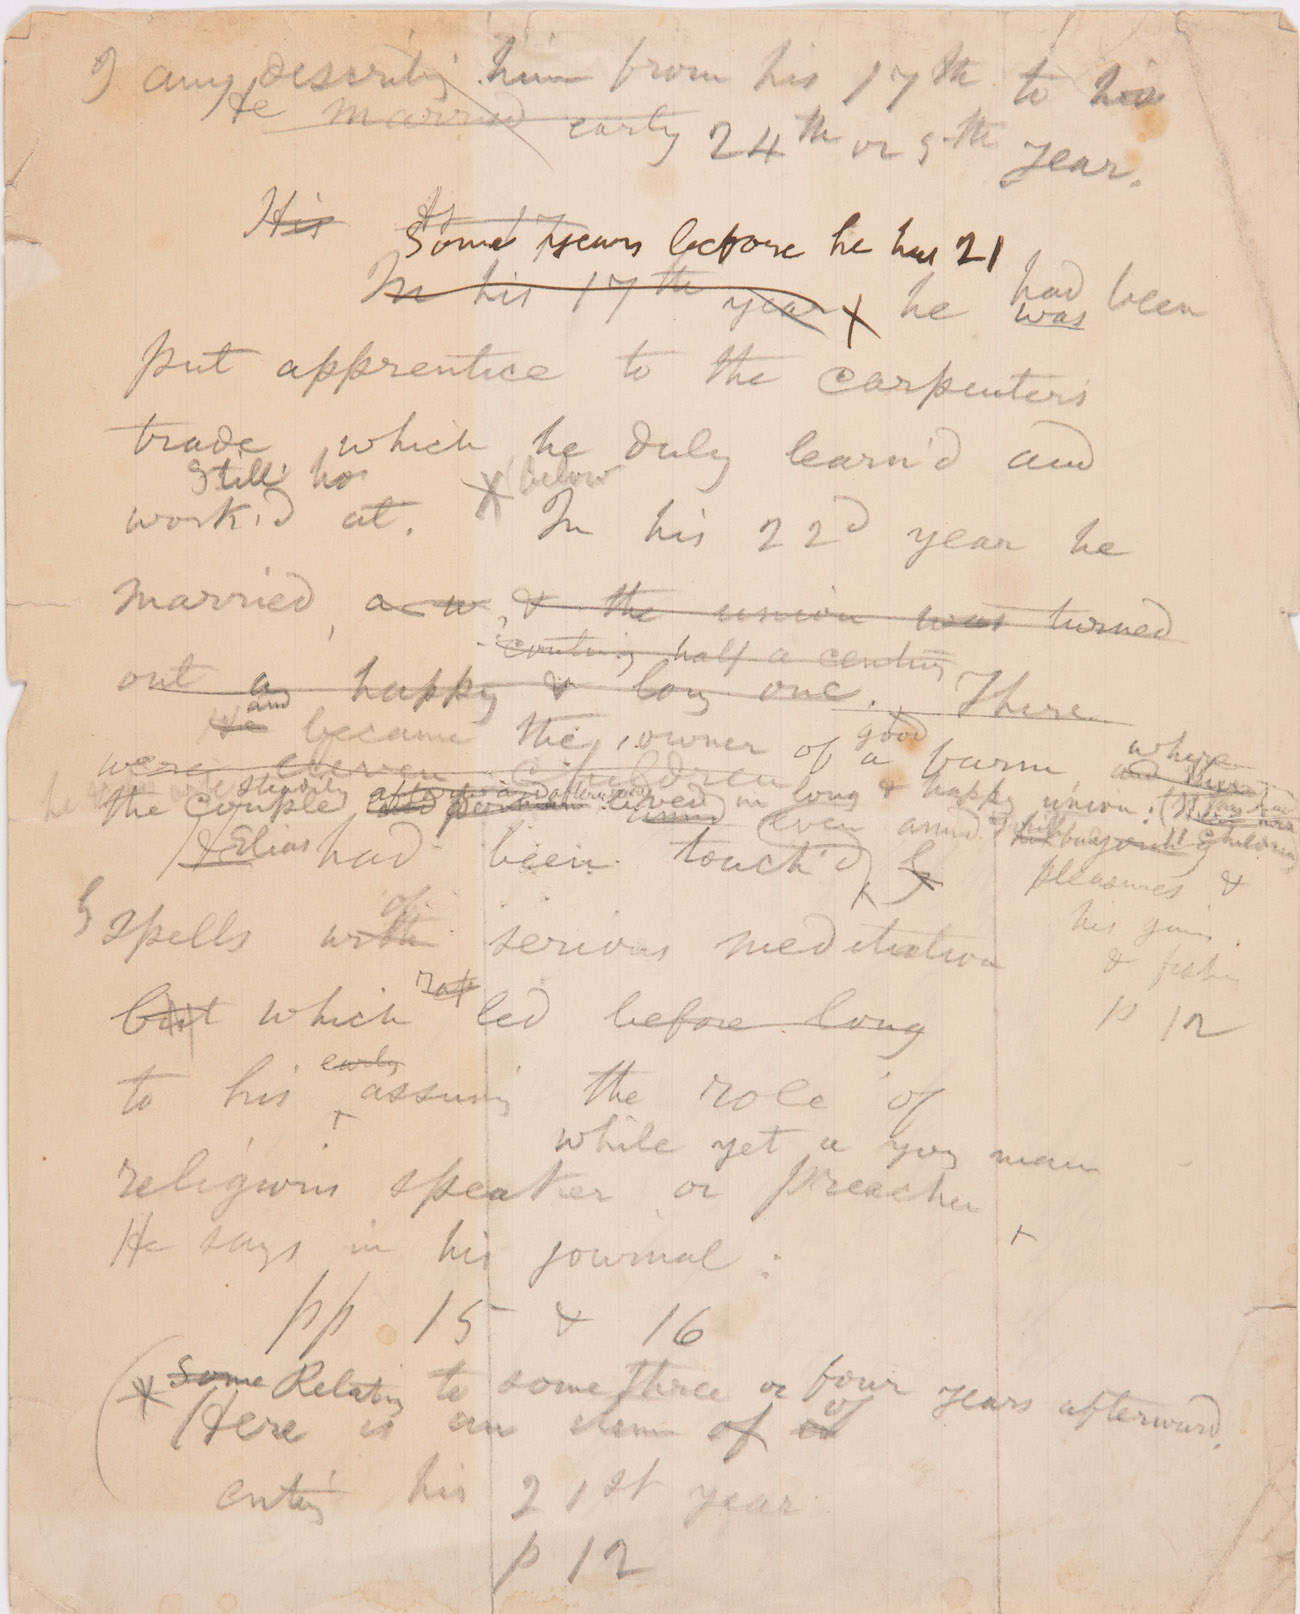 I am describing him from his 17th to his
He married early 24th or 5th year.
His At 17
Some years before he was 21
In his 17th year X he had been
was
put apprentice to the carpenter's
trade, which he duly learn'd and
Still he X below
work'd at. In his 22d year he
married, a w & the union was turned
half a century
out a happy & long one. There
and
He became the owner of a good farm, where
were eleven children
the couple steadily lived in long & happy union.
even amid
& Elias had been touch'd by pleasures &
of his gun
spells with serious meditation & fishing
not p 12
but which led before long
early
to his assuming the role of
while yet a young man
religious speaker or preacher
He says in his journal:
pp 15 & 16
(X Some Relating to some three or four years afterward.
Here is an item of of
entering his 21st year
p 12